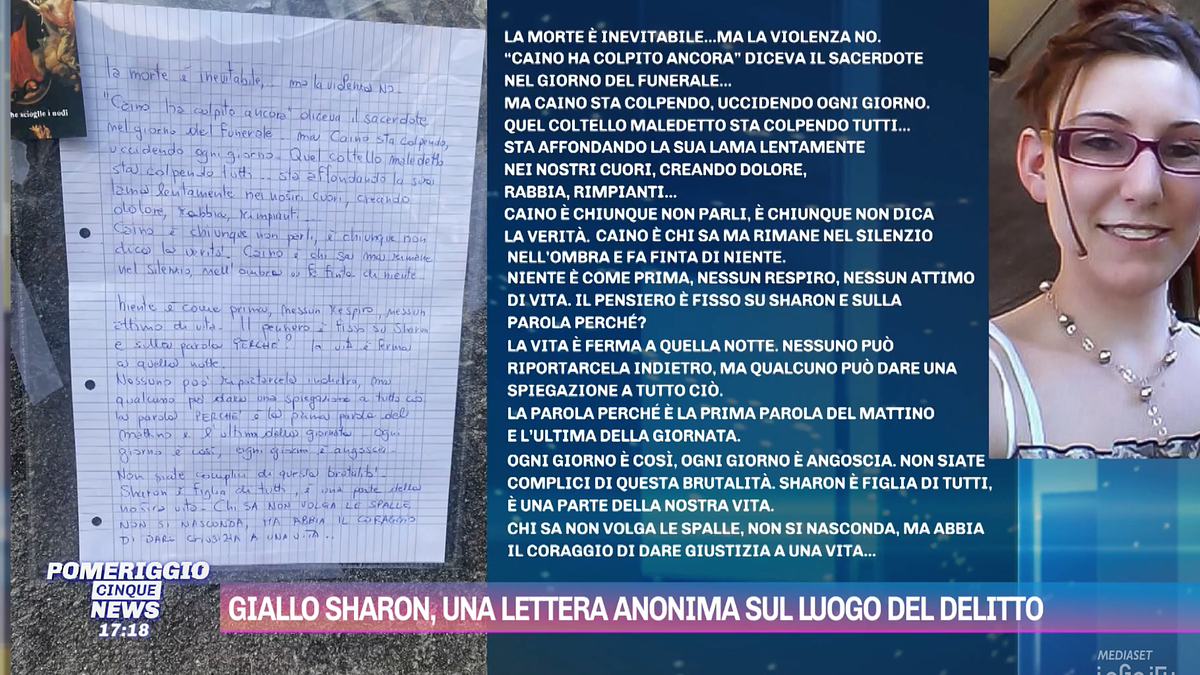 he scioglie i nodi
la morte è inevitabile,... ma la violenza no.
"Caino ha colpito ancora" diceva il sacerdote
nel giorno del funerale... ma Caino sta colpendo,
uccidendo ogni giorno. Quel coltello maledetto
sta colpendo tutti... sta affondando la sua
lama lentamente nei nostri cuori, creando
dolore, rabbia, rimpianti...
Caino è chiunque non parli, è chiunque non
dica la verità. Caino è chi sa ma rimane
nel silenzio, nell'ombra e fa finta di niente.
Niente è come prima, nessun respiro, nessun
attimo di vita. Il pensiero è fisso su Sharon
e sulla parola PERCHÉ? la vita è ferma
a quella notte.
Nessuno può riportarcela indietro, ma
qualcuno può dare una spiegazione a tutto ciò
la parola PERCHÉ è la prima parola del
mattino e l'ultima della giornata. Ogni
giorno è così, ogni giorno è angoscia.
Non siate complici di questa brutalità.
Sharon è figlia di tutti, è una parte della
nostra vita. CHI SA NON VOLGA LE SPALLE,
NON SI NASCONDA, MA ABBIA IL CORAGGIO
DI DARE GIUSTIZIA A UNA VITA...
LA MORTE È INEVITABILE...MA LA VIOLENZA NO.
“CAINO HA COLPITO ANCORA” DICEVA IL SACERDOTE
NEL GIORNO DEL FUNERALE...
MA CAINO STA COLPENDO, UCCIDENDO OGNI GIORNO.
QUEL COLTELLO MALEDETTO STA COLPENDO TUTTI...
STA AFFONDANDO LA SUA LAMA LENTAMENTE
NEI NOSTRI CUORI, CREANDO DOLORE,
RABBIA, RIMPIANTI...
CAINO È CHIUNQUE NON PARLI, È CHIUNQUE NON DICA
LA VERITÀ. CAINO È CHI SA MA RIMANE NEL SILENZIO
NELL'OMBRA E FA FINTA DI NIENTE.
NIENTE È COME PRIMA, NESSUN RESPIRO, NESSUN ATTIMO
DI VITA. IL PENSIERO È FISSO SU SHARON E SULLA
PAROLA PERCHÉ?
LA VITA È FERMA A QUELLA NOTTE. NESSUNO PUÒ
RIPORTARCELA INDIETRO, MA QUALCUNO PUÒ DARE UNA
SPIEGAZIONE A TUTTO CIÒ.
LA PAROLA PERCHÉ È LA PRIMA PAROLA DEL MATTINO
E L'ULTIMA DELLA GIORNATA.
OGNI GIORNO È COSÌ, OGNI GIORNO È ANGOSCIA. NON SIATE
COMPLICI DI QUESTA BRUTALITÀ. SHARON È FIGLIA DI TUTTI,
È UNA PARTE DELLA NOSTRA VITA.
CHI SA NON VOLGA LE SPALLE, NON SI NASCONDA, MA ABBIA
IL CORAGGIO DI DARE GIUSTIZIA A UNA VITA...
POMERIGGIO
CINQUE
NEWS
17:18
GIALLO SHARON, UNA LETTERA ANONIMA SUL LUOGO DEL DELITTO
MEDIASET